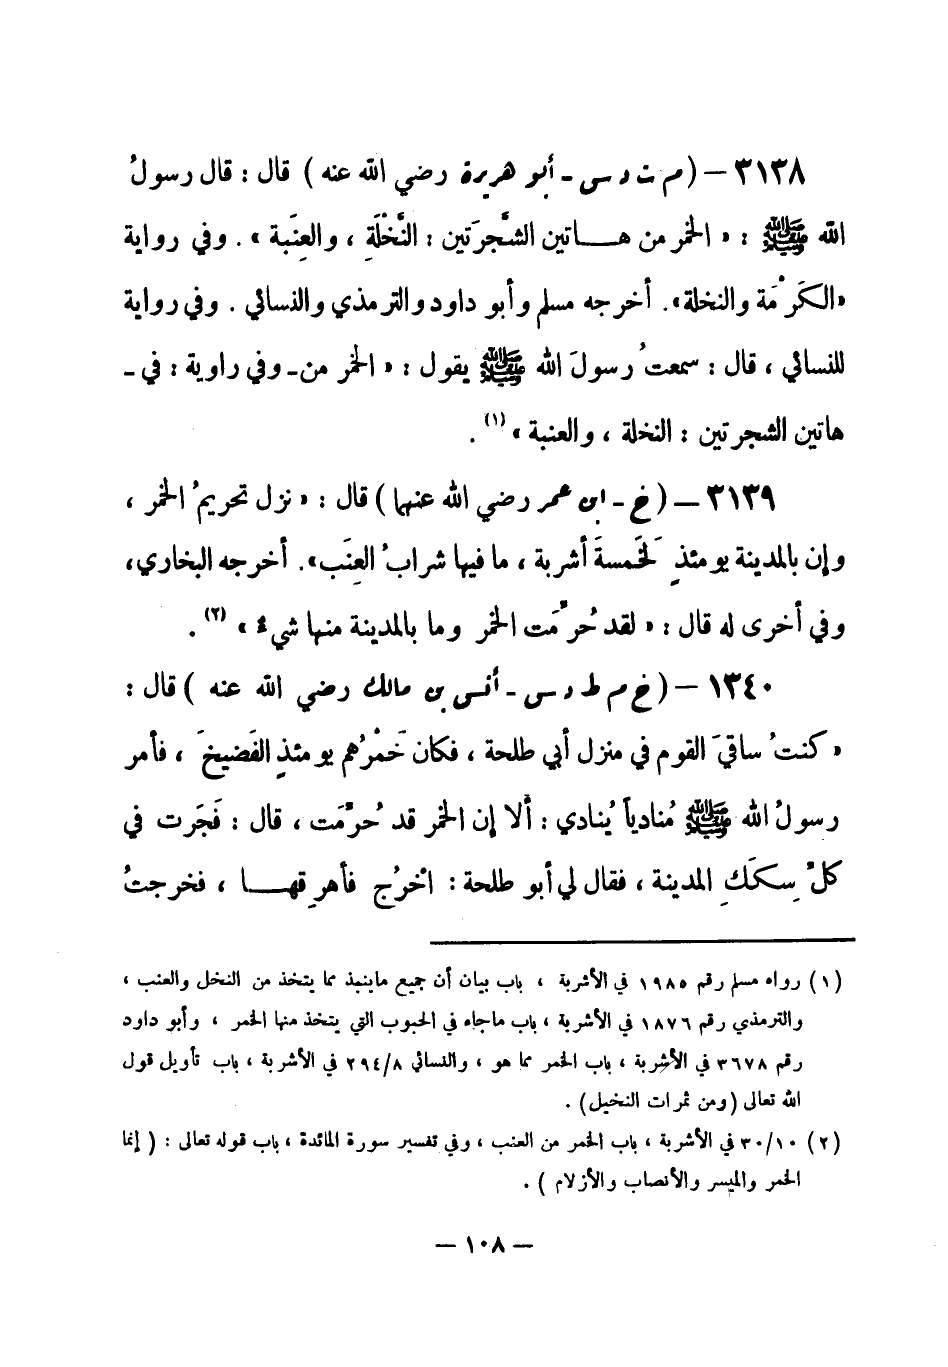 ٣١٣٨ – (م ت د س - أبو هريرة رضي الله عنه ) قال : قال رسولُ
الله ﷺ : « الخمر من هـــاتين الشَّجرَتين : النَّخْلَةِ ، والعِنَبة » . وفي رواية
«الكَرْمَة والنخلة». أخرجه مسلم وأبو داود والترمذي والنسائي . وفي رواية
للنسائي ، قال : سمعتُ رسولَ الله ﷺ يقول : « الخمر من- وفي راوية : في -
هاتين الشجرتين : النخلة ، والعنبة » (١) .
٣١٣٩ – ( خ - ابن عمر رضي الله عنهما ) قال : « نزل تحريمُ الخمر ،
وإن بالمدينة يومئذٍ لخَمسةَ أشربة ، ما فيها شرابُ العِنَب». أخرجه البخاري،
وفي أخرى له قال : « لقد حُرِّمَت الخمر وما بالمدينة منها شيء » (٢) .
١٣٤٠ – ( خ م ط د س - أنس بن مالك رضي الله عنه ) قال :
« كنتُ ساقيَ القوم في منزل أبي طلحة ، فكان خَمْرُهم يومئذٍ الفَضيخَ ، فأمر
رسولُ الله ﷺ مُنادياً يُنادي : ألا إن الخمر قد حُرِّمَت ، قال : فَجَرت في
كلِّ سِكَكِ المدينة ، فقال لي أبو طلحة : اخرُج فأهرِقهـــا ، فخرجتُ
(١) رواه مسلم رقم ١٩٨٥ في الأشربة ، باب بيان أن جميع ماينبذ مما يتخذ من النخل والعنب ،
والترمذي رقم ١٨٧٦ في الأشربة ، باب ماجاء في الحبوب التي يتخذ منها الخمر ، وأبو داود
رقم ٣٦٧٨ في الأشربة ، باب الخمر مما هو ، والنسائي ٢٩٤/٨ في الأشربة ، باب تأويل قول
الله تعالى (ومن ثمرات النخيل) .
(٢) ٣٠/١٠ في الأشربة ، باب الخمر من العنب ، وفي تفسير سورة المائدة ، باب قوله تعالى : ( إنما
الخمر والميسر والأنصاب والأزلام ) .
– ١٠٨ –